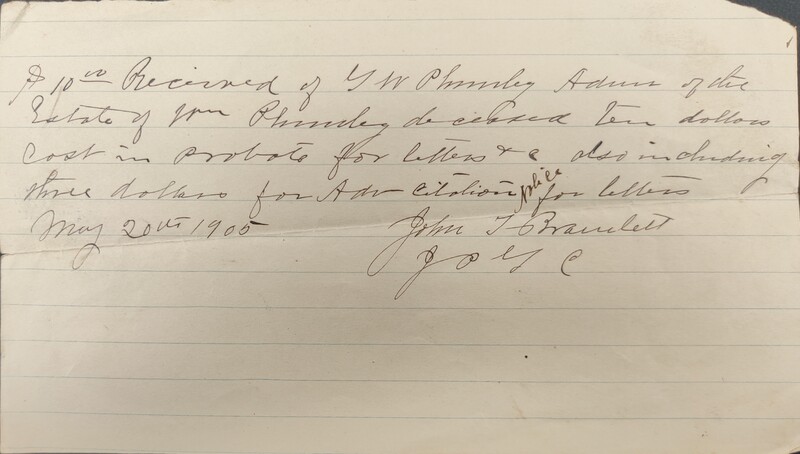 $10.00 Received of G W Plumley Admr of the
Estate of Wm Plumley deceased ten dollars
cost in probate for letters & c also including
three dollars for Adv citation notice for letters
May 20th 1905 John T Bramlett
J P G C